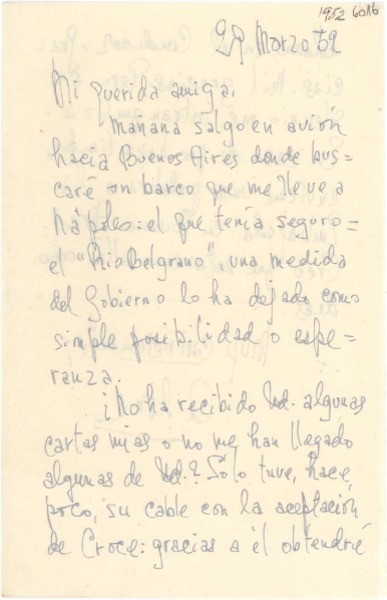 1952 6016
29 Marzo 52
Mi querida amiga:
Mañana salgo en avión
hacia Buenos Aires donde bus=
caré un barco que me lleve a
Nápoles: el que tenía seguro=
el "Rio Belgrano", una medida
del Gobierno lo ha dejado como
simple posibilidad o espe=
ranza.
¿No ha recibido Ud. algunas
cartas mias o no me han llegado
algunas de Ud.? Sólo tuve, hace
poco, su cable con la aceptación
de Croce: gracias a él obtendré